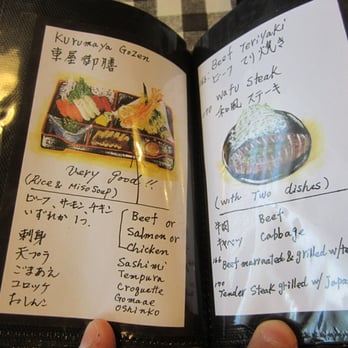 Kurumaya Gozen
車屋御膳
very good!!
(Rice & Miso Soup)
ビーフ、サーモン、チキン
いずれか1つ.
Beef or
Salmon or
Chicken
刺身 Sashimi
天プラ Tempura
ごまあえ Croquette
コロッケ Gomaae
おしんこ Oshinko
166. Beef Teriyaki
ビーフ てり焼き
170 Wafu Steak
和風 ステーキ
(with Two dishes)
牛肉 Beef
キャベツ Cabbage
166 Beef marinated & grilled w/te
170 Tender Steak grilled w/ Japa